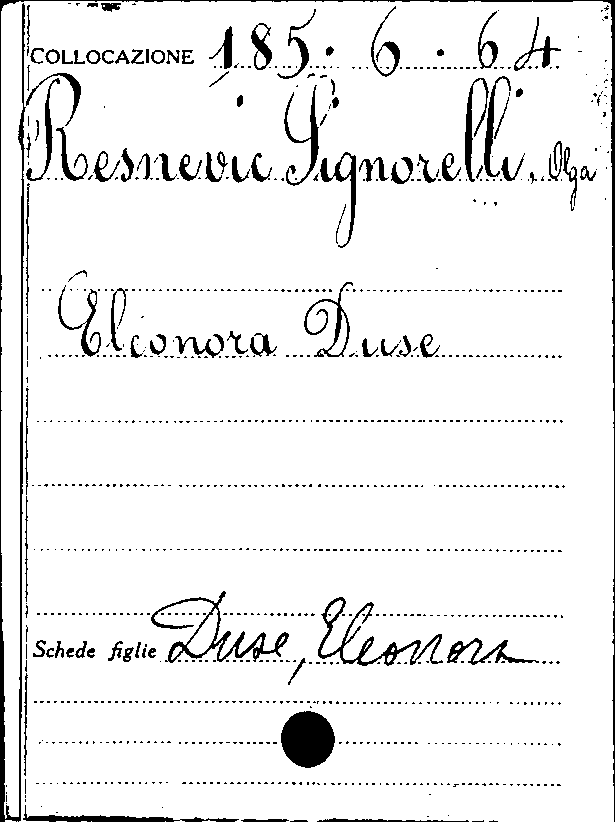 COLLOCAZIONE 185.6.64
Resnevic Signorelli, Olga
Eleonora Duse
Schede figlie Duse, Eleonora